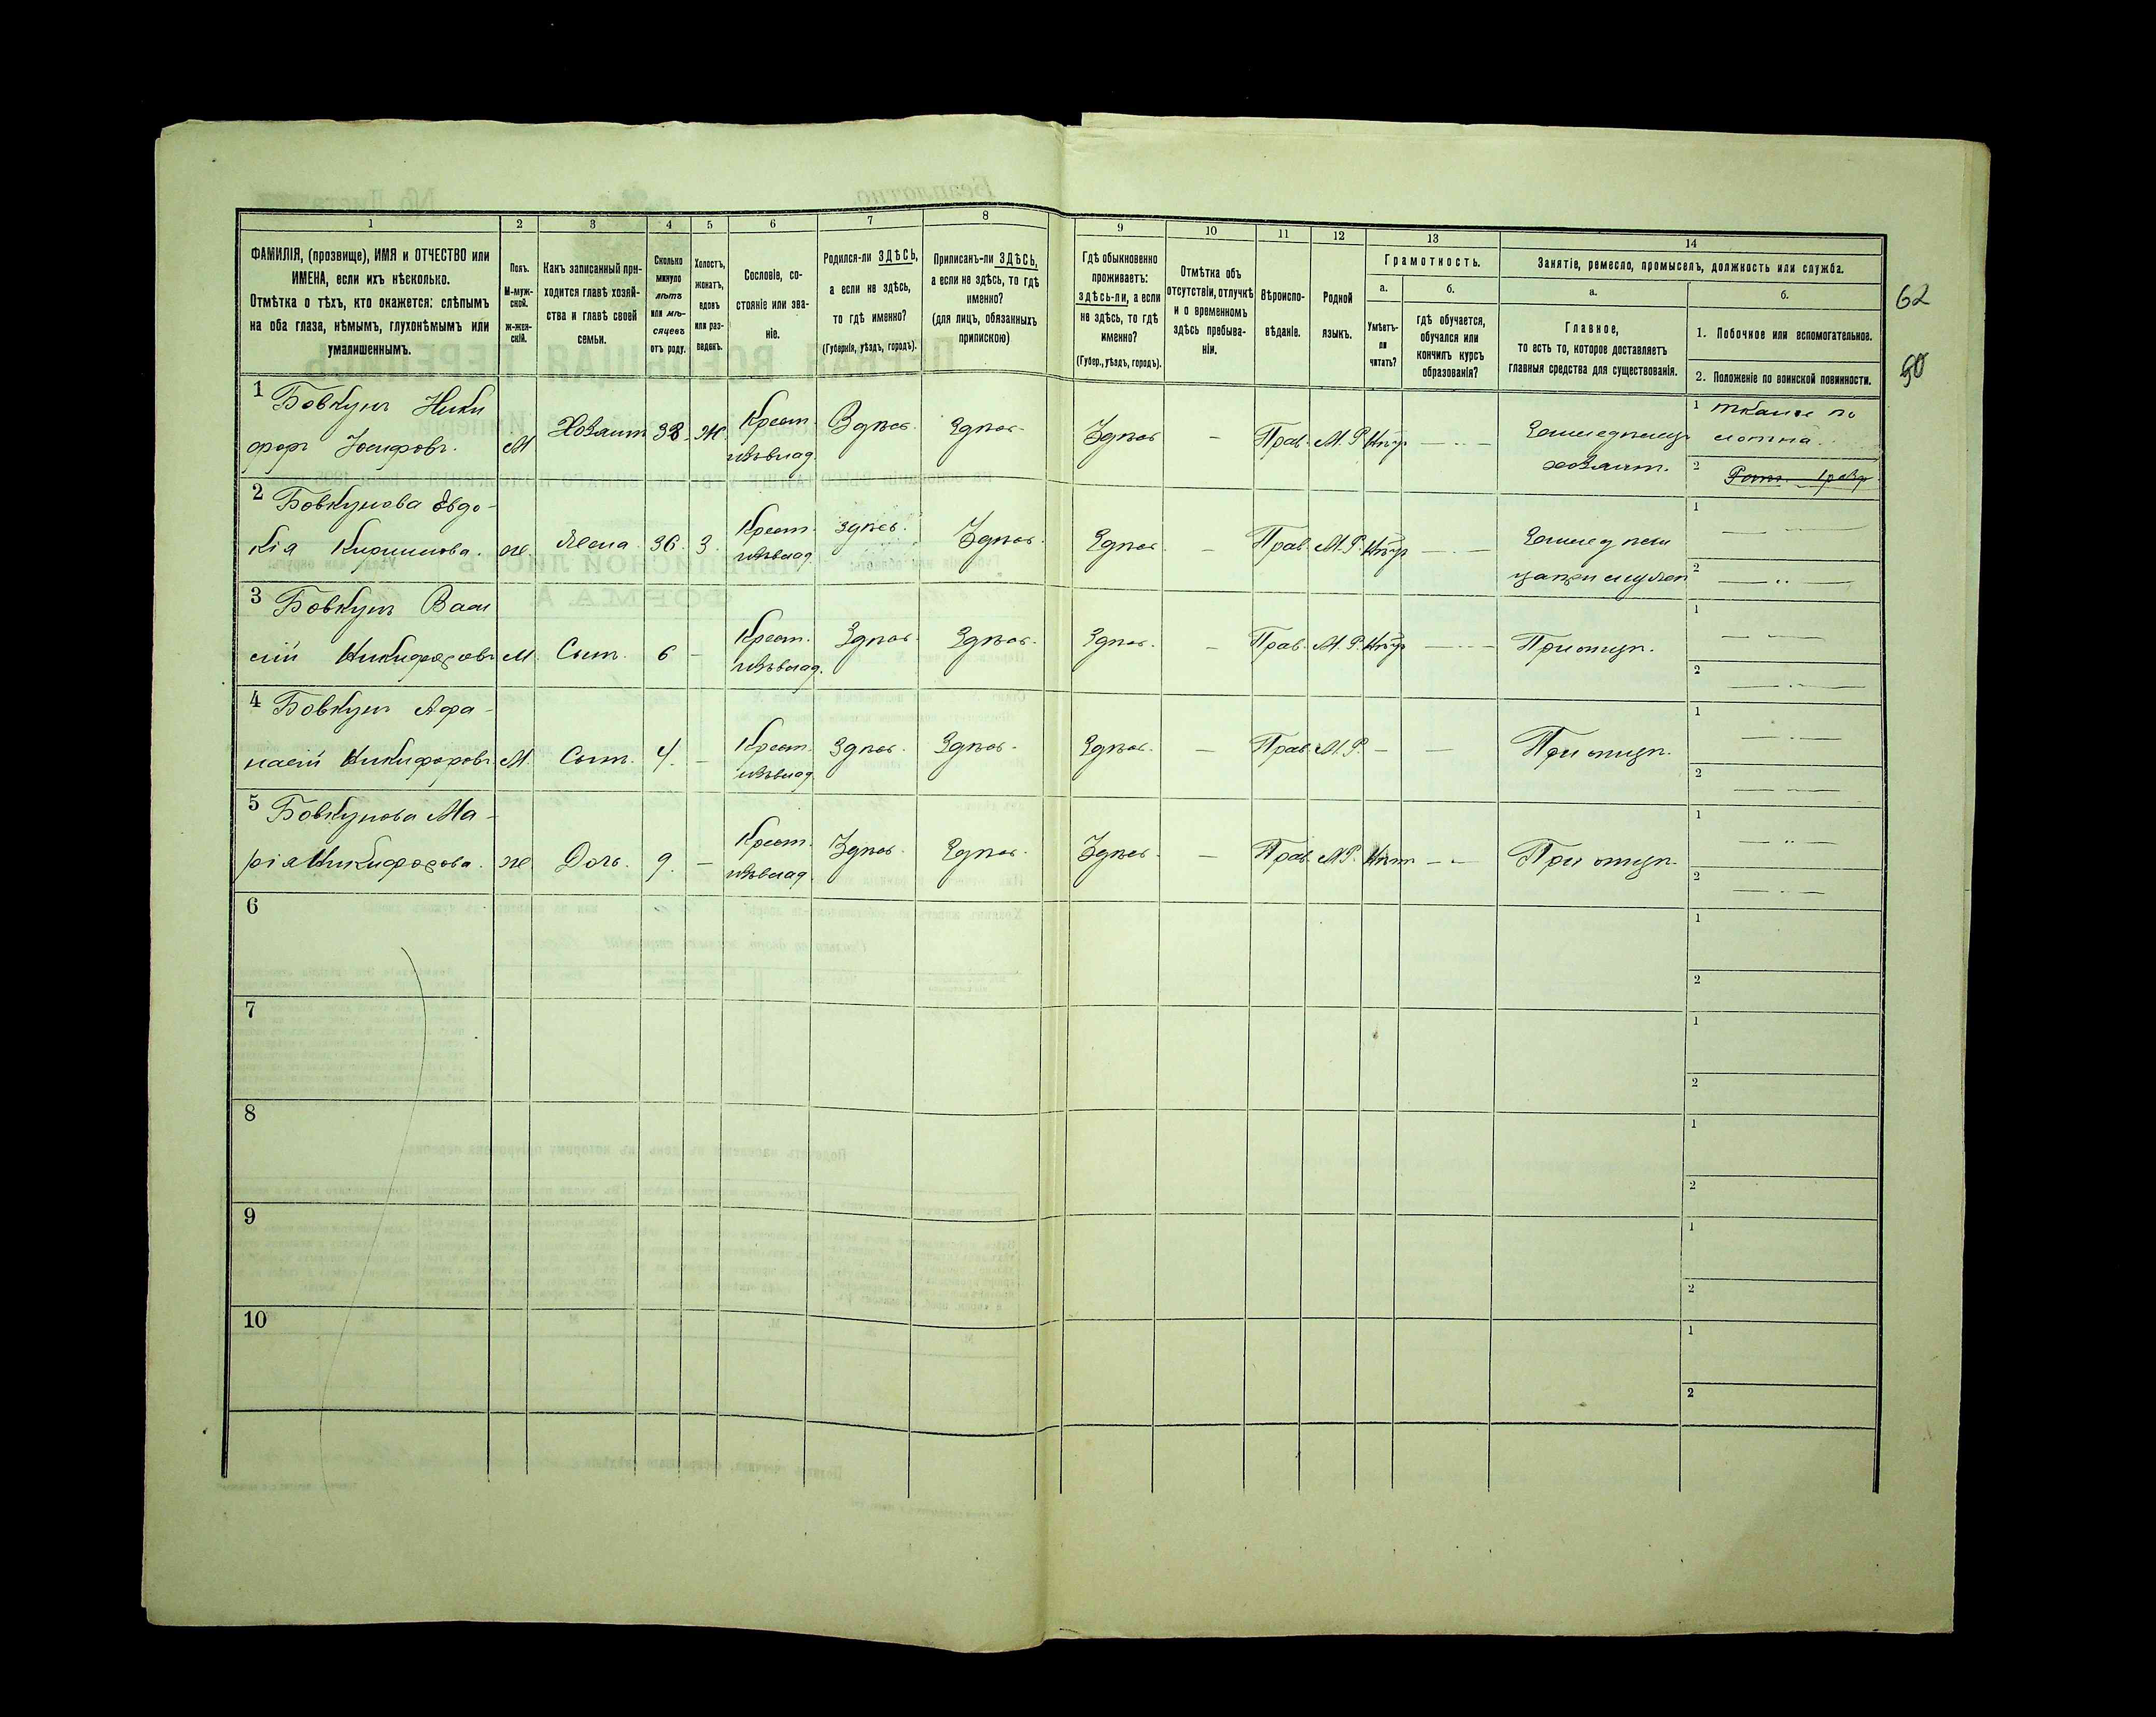 1
2
3
4
5
6
7
8
9
10
11
12
13
14
ФАМИЛІЯ, (прозвище), ИМЯ и ОТЧЕСТВО или
ИМЕНА, если ихъ нѣсколько.
Отмѣтка о тѣхъ, кто окажется: слѣпымъ
на оба глаза, нѣмымъ, глухонѣмымъ или
умалишеннымъ.
Полъ.
М-муж-
ской.
ж-жен-
скій.
Какъ записанный при-
ходится главѣ хозяй-
ства и главѣ своей
семьи.
Сколько
минуло
лѣтъ
или мѣ-
сяцевъ
отъ роду.
Холостъ,
жонатъ,
вдовъ
или раз-
веденъ.
Сословіе, со-
стояніе или зва-
ніе.
Родился-ли ЗДѢСЬ,
а если не здѣсь,
то гдѣ именно?
(Губернія, уѣздъ, городъ).
Приписанъ-ли ЗДѢСЬ,
а если не здѣсь, то гдѣ
именно?
(для лицъ, обязанныхъ
припискою)
Гдѣ обыкновенно
проживаетъ:
здѣсь-ли, а если
не здѣсь, то гдѣ
именно?
(Губер., уѣздъ, городъ).
Отмѣтка объ
отсутствіи, отлучкѣ
и о временномъ
здѣсь пребыва-
ніи.
Вѣроиспо-
вѣданіе.
Родной
языкъ.
Грамотность.
а.
Умѣетъ-
ли
читать?
б.
гдѣ обучается,
обучался или
кончилъ курсъ
образованія?
Занятіе, ремесло, промыселъ, должность или служба.
а.
Главное,
то есть то, которое доставляетъ
главныя средства для существованія.
б.
1. Побочное или вспомогательное.
2. Положеніе по воинской повинности.
62
50
1 Бовкунъ Ники
форъ Іосифовъ. М Хозяинъ 38 Ж. Крест. Здѣсь Здѣсь Здѣсь – Прав. М.Р. хозяинъ.
1 тканье по
лотна.
2
2 Бовкунова Евдо-
кія ж Жена 36. З. Крест. здѣсь. Здѣсь. Здѣсь – Прав. М.Р.
1
2
3 Бовкунъ Васи
лій Никифоровъ М. Сынъ. 6 – Крест. Здѣсь. Здѣсь. Здѣсь. – Прав. М.Р. При отцѣ.
1
2
4 Бовкунъ Афа-
насій Никифоровъ. М. Сынъ. 4. – Крест. Здѣсь. Здѣсь. Здѣсь. – Прав. М.Р. – – При отцѣ.
1
2
5 Бовкунова Ма-
рія Никифорова. ж Дочь. 9. – Крест. Здѣсь. Здѣсь. Здѣсь. – Прав. М.Р. Нѣтъ При отцѣ.
1
2
6
1
2
7
1
2
8
1
2
9
1
2
10
1
2